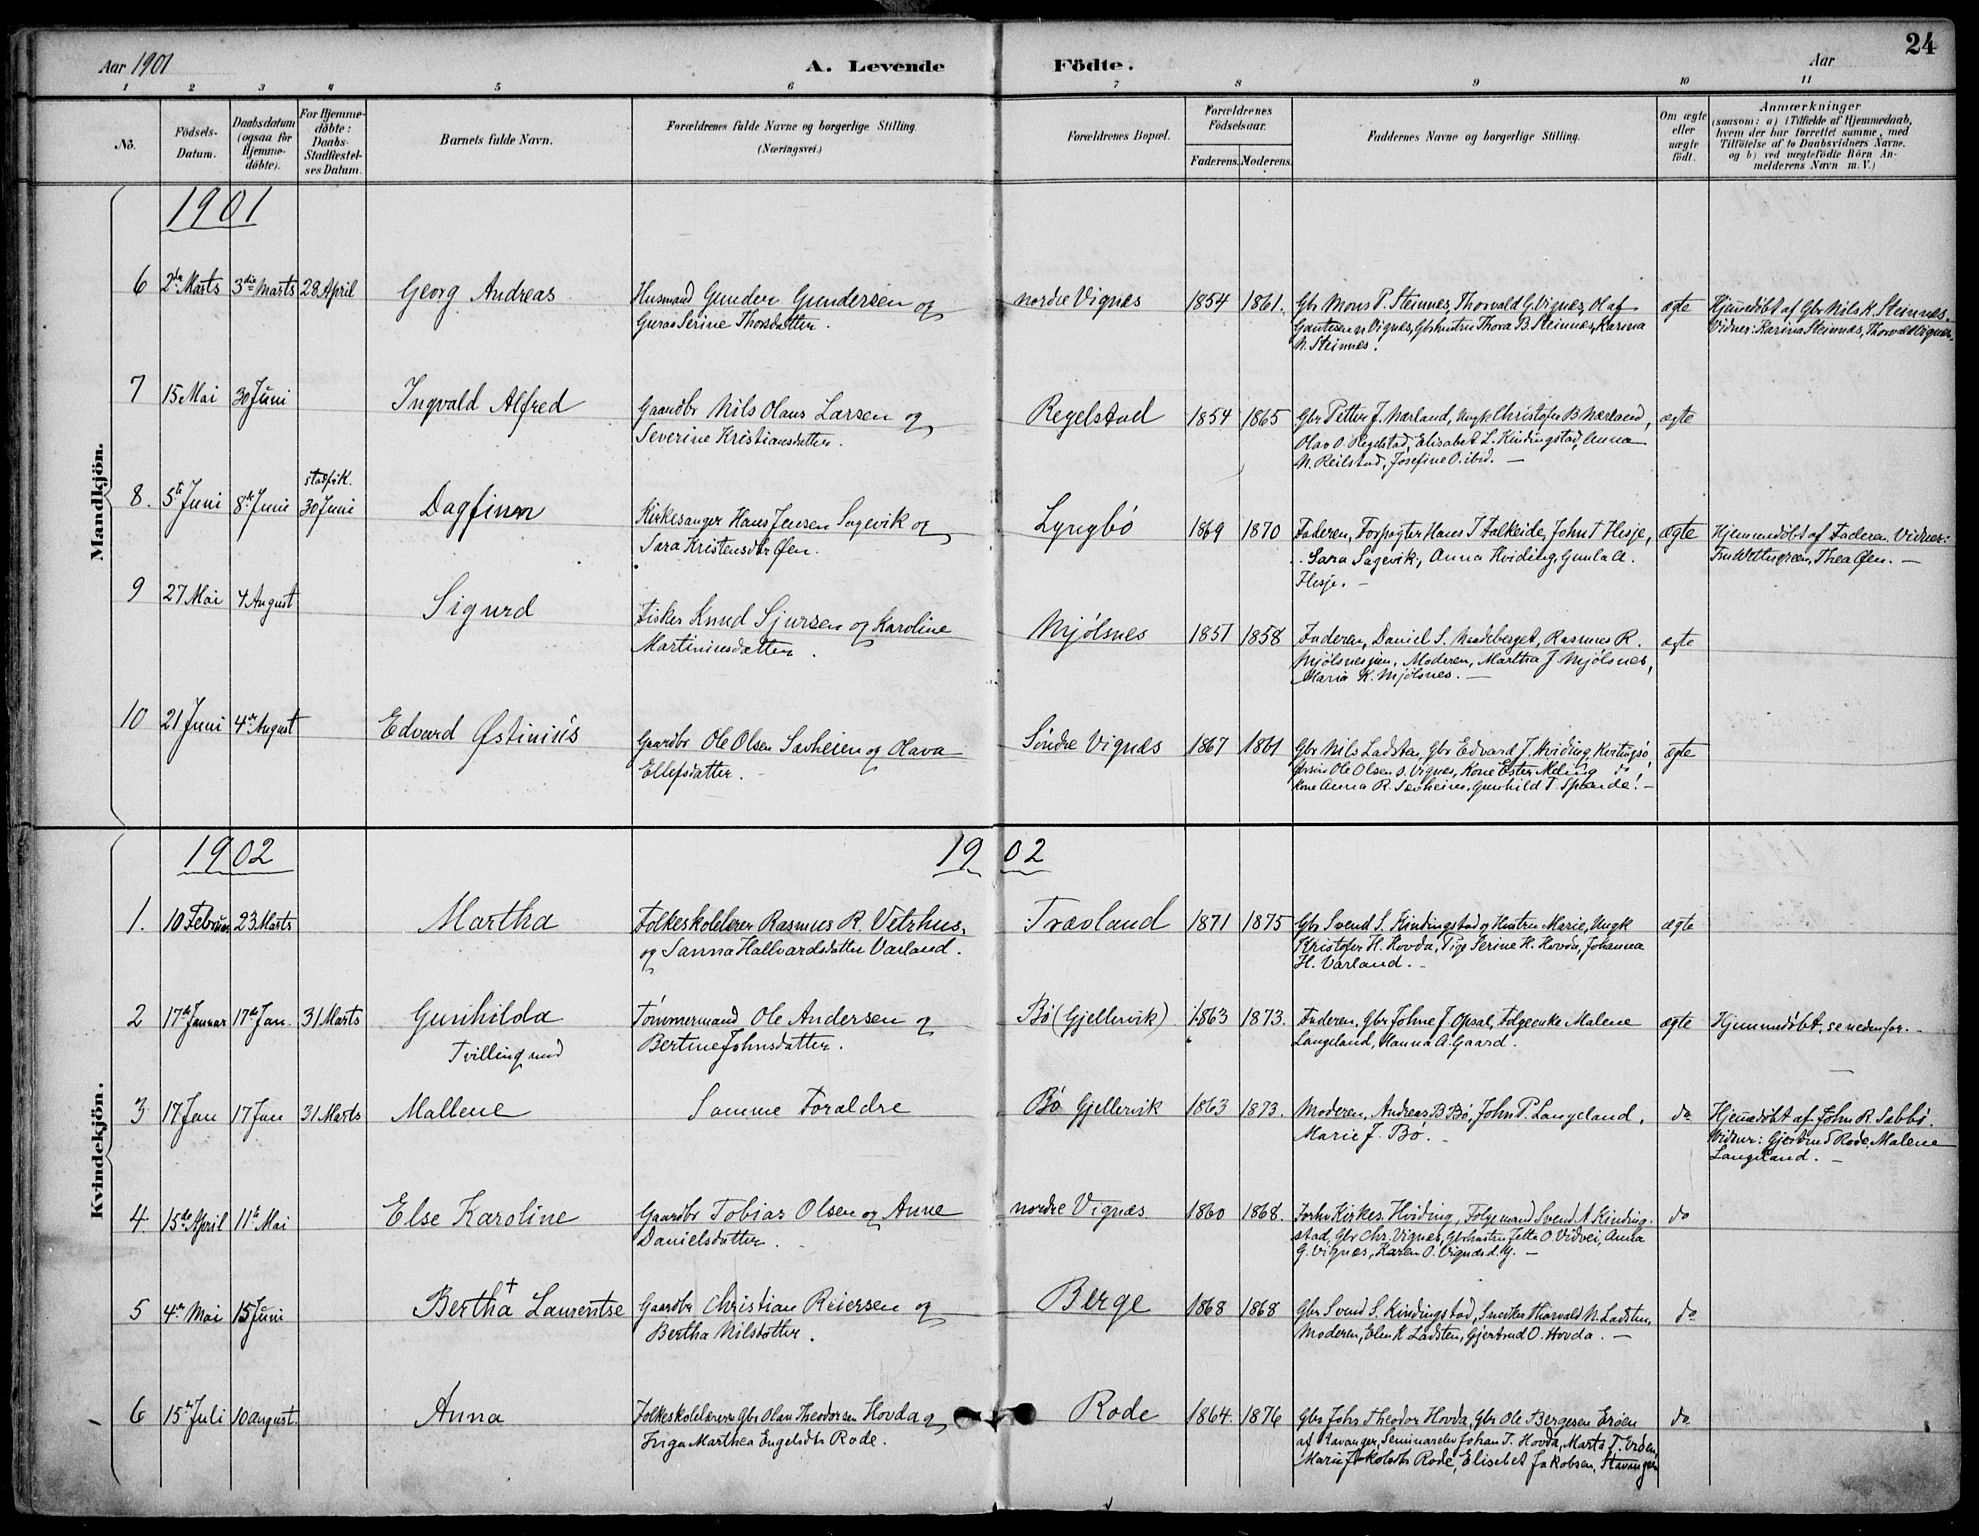 24
Aar 1901
A. Levende Födte.
Aar
1 2 3 4 5 6 7 8 9 10 11
No.
Födsels-Datum.
Daabsdatum (ogsaa for Hjemme-döbte).
For Hjemme-döbte: Daabs-Stadfæstel-ses Datum.
Barnets fulde Navn.
Forældrenes fulde Navne og borgerlige Stilling. (Næringsvei.)
Forældrenes Bopæl.
Forældrenes Födselsaar.
Faderens. Moderens.
Faddernes Navne og borgerlige Stilling.
Om ægte eller uægte födt.
Anmærkninger
(saasom: a) i Tilfælde af Hjemmedaab,
hvem der har forrettet samme, med
Tilföielse af to Daabsvidners Navne.
og b) ved uægtefödte Börn An-
melderens Navn m. V.)
Mandkjön.
1901
6 2den Marts 3die Marts 28 April Georg Andreas
Husmand Gunder Gundersen og
Guras Serine Thorsdatter.
nordre Vignes 1854 1861.
Gbr Mons P. Steinnes, Thorvald G. Vignes, Olaf
Gautesen n Vignes, Gbhustru Thora B. Steinnes, Karina
N. Steinnes.
ægte
Hjemmedøbt af Gbr Nils K. Steinnes.
Vidner: Karina Steinnes, Thorvald Vignes.
7 15 Mai 30 Juni Ingvald Alfred
Gaardbr Nils Olaus Larsen og
Severine Kristiansdatter.
Regelstad 1854 1865
Gbr Petter J. Nærland, Ungk Christofer B. Nærland,
Olav O. Regelstad, Elisabet L. Kindingstad, Anna
N. Reilstad, Josefine O. ibid. —
ægte
8. 5te Juni 8de Juni stadfæst. 30 Juni Dagfinn
Kirkesanger Hans Jensen Sagevik og
Sara Kristensdtr Øen.
Lyngbø 1869 1870
Faderen, Forpagter Hans T Falkeide, John T Hesje,
Sara Sagevik, Anna Hviding, Gunla A.
Hesje. —
ægte
Hjemmedøbt af Faderen. Vidner:
Thea Øen. —
9 27 Mai 4 August Sigurd
Fisker Knud Sjursen og Karoline
Martiniusdatter.
Mjølsnes 1851 1858
Faderen, Daniel S. Naadeberget, Rasmus R.
Mjølsnes jun, Moderen, Martha J Mjølsnes,
Maria K. Mjølsnes. —
ægte
10 21 Juni 4de August Edvard Østinius
Gaardbr Ole Olsen Sævheien og Olava
Ellefsdatter.
Søndre Vignæs 1867 1861
Gbr Nils Ladsten, Gbr Edvard J. Hviding, Kvitingsø,
Ole Olsen s. Vignes, Kone Ester Meling do
Kone Anna R. Sævheien, Gunhild T. Spande. —
ægte
Kvindekjön.
1902 1902
1. 10 Februar 23 Marts Martha
Folkeskolelærer Rasmus R. Vetrhus,
og Sanna Hallvardsdatter Varland.
Trævland 1871 1875
Gbr Svend S. Kindingstad og Hustru Marie, Ungk
Kristofer H. Hovda, Pige Serine H. Hovda, Johanna
H. Varland. —
ægte
2 17de Januar 17de Jan. 31 Marts Gunhilda
Tvilling med
Tømmermand Ole Andersen og
Bertine Johnsdatter.
Bø (Gjellervik) 1863 1873.
Faderen, Gbr Johne J Opsal, Folgeenke Malene
Langeland, Hanna A. Gaard.
ægte
Hjemmedøbt, se nedenfor. —
3 17 Jan 17 Jan 31 Marts Mallene
Samme Forældre
Bø Gjellervik 1863 1873.
Moderen, Andreas B Bø, John P. Langeland,
Marie J. Bø. —
do
Hjemmedøbt af John R. Sabbø.
Vidner: Gjertrud Rode, Malene
Langeland. —
4. 15de April 11te Mai Else Karoline
Gaardbr Tobias Olsen og Anne
Danielsdatter.
nordre Vignæs 1860 1868.
Forhv Kirkes. Hviding, Folgemand Svend A Kinding-
stad, Gbr Chr. Vignes, Gbrhustru Jetta O. Vidvei, Anna
G. Vignes, Karen O. Vignes d. y. —
do
5 4de Mai 15 Juni Bertha + Laurentse
Gaardbr Christian Reiersen og
Bertha Nilsdatter.
Berge 1868 1868
Gbr Svend S. Kindingstad, Snedker Thorvald N. Ladsten,
Moderen, Elen K Ladsten, Gjertrud O. Hovda. —
do
6 15de Juli 10 august. Anna
Folkeskolelærer Gbr Olau Theodorsen Hovda og
Inga Marthea Engelsdtr Rode.
Rode 1864. 1876
Gbr Johs Theodor Hovda, Gbr Ole Bergesen Erøen
af Stavanger, Seminarelev Johan T. Hovda, Marta T. Erøen,
Marie Jakobsdtr Rode, Elisebet Jakobsen, Stavanger
do